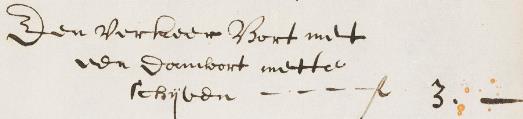 Een verkeer Bort met
een dambort mette
schijven - - - - f 3. -